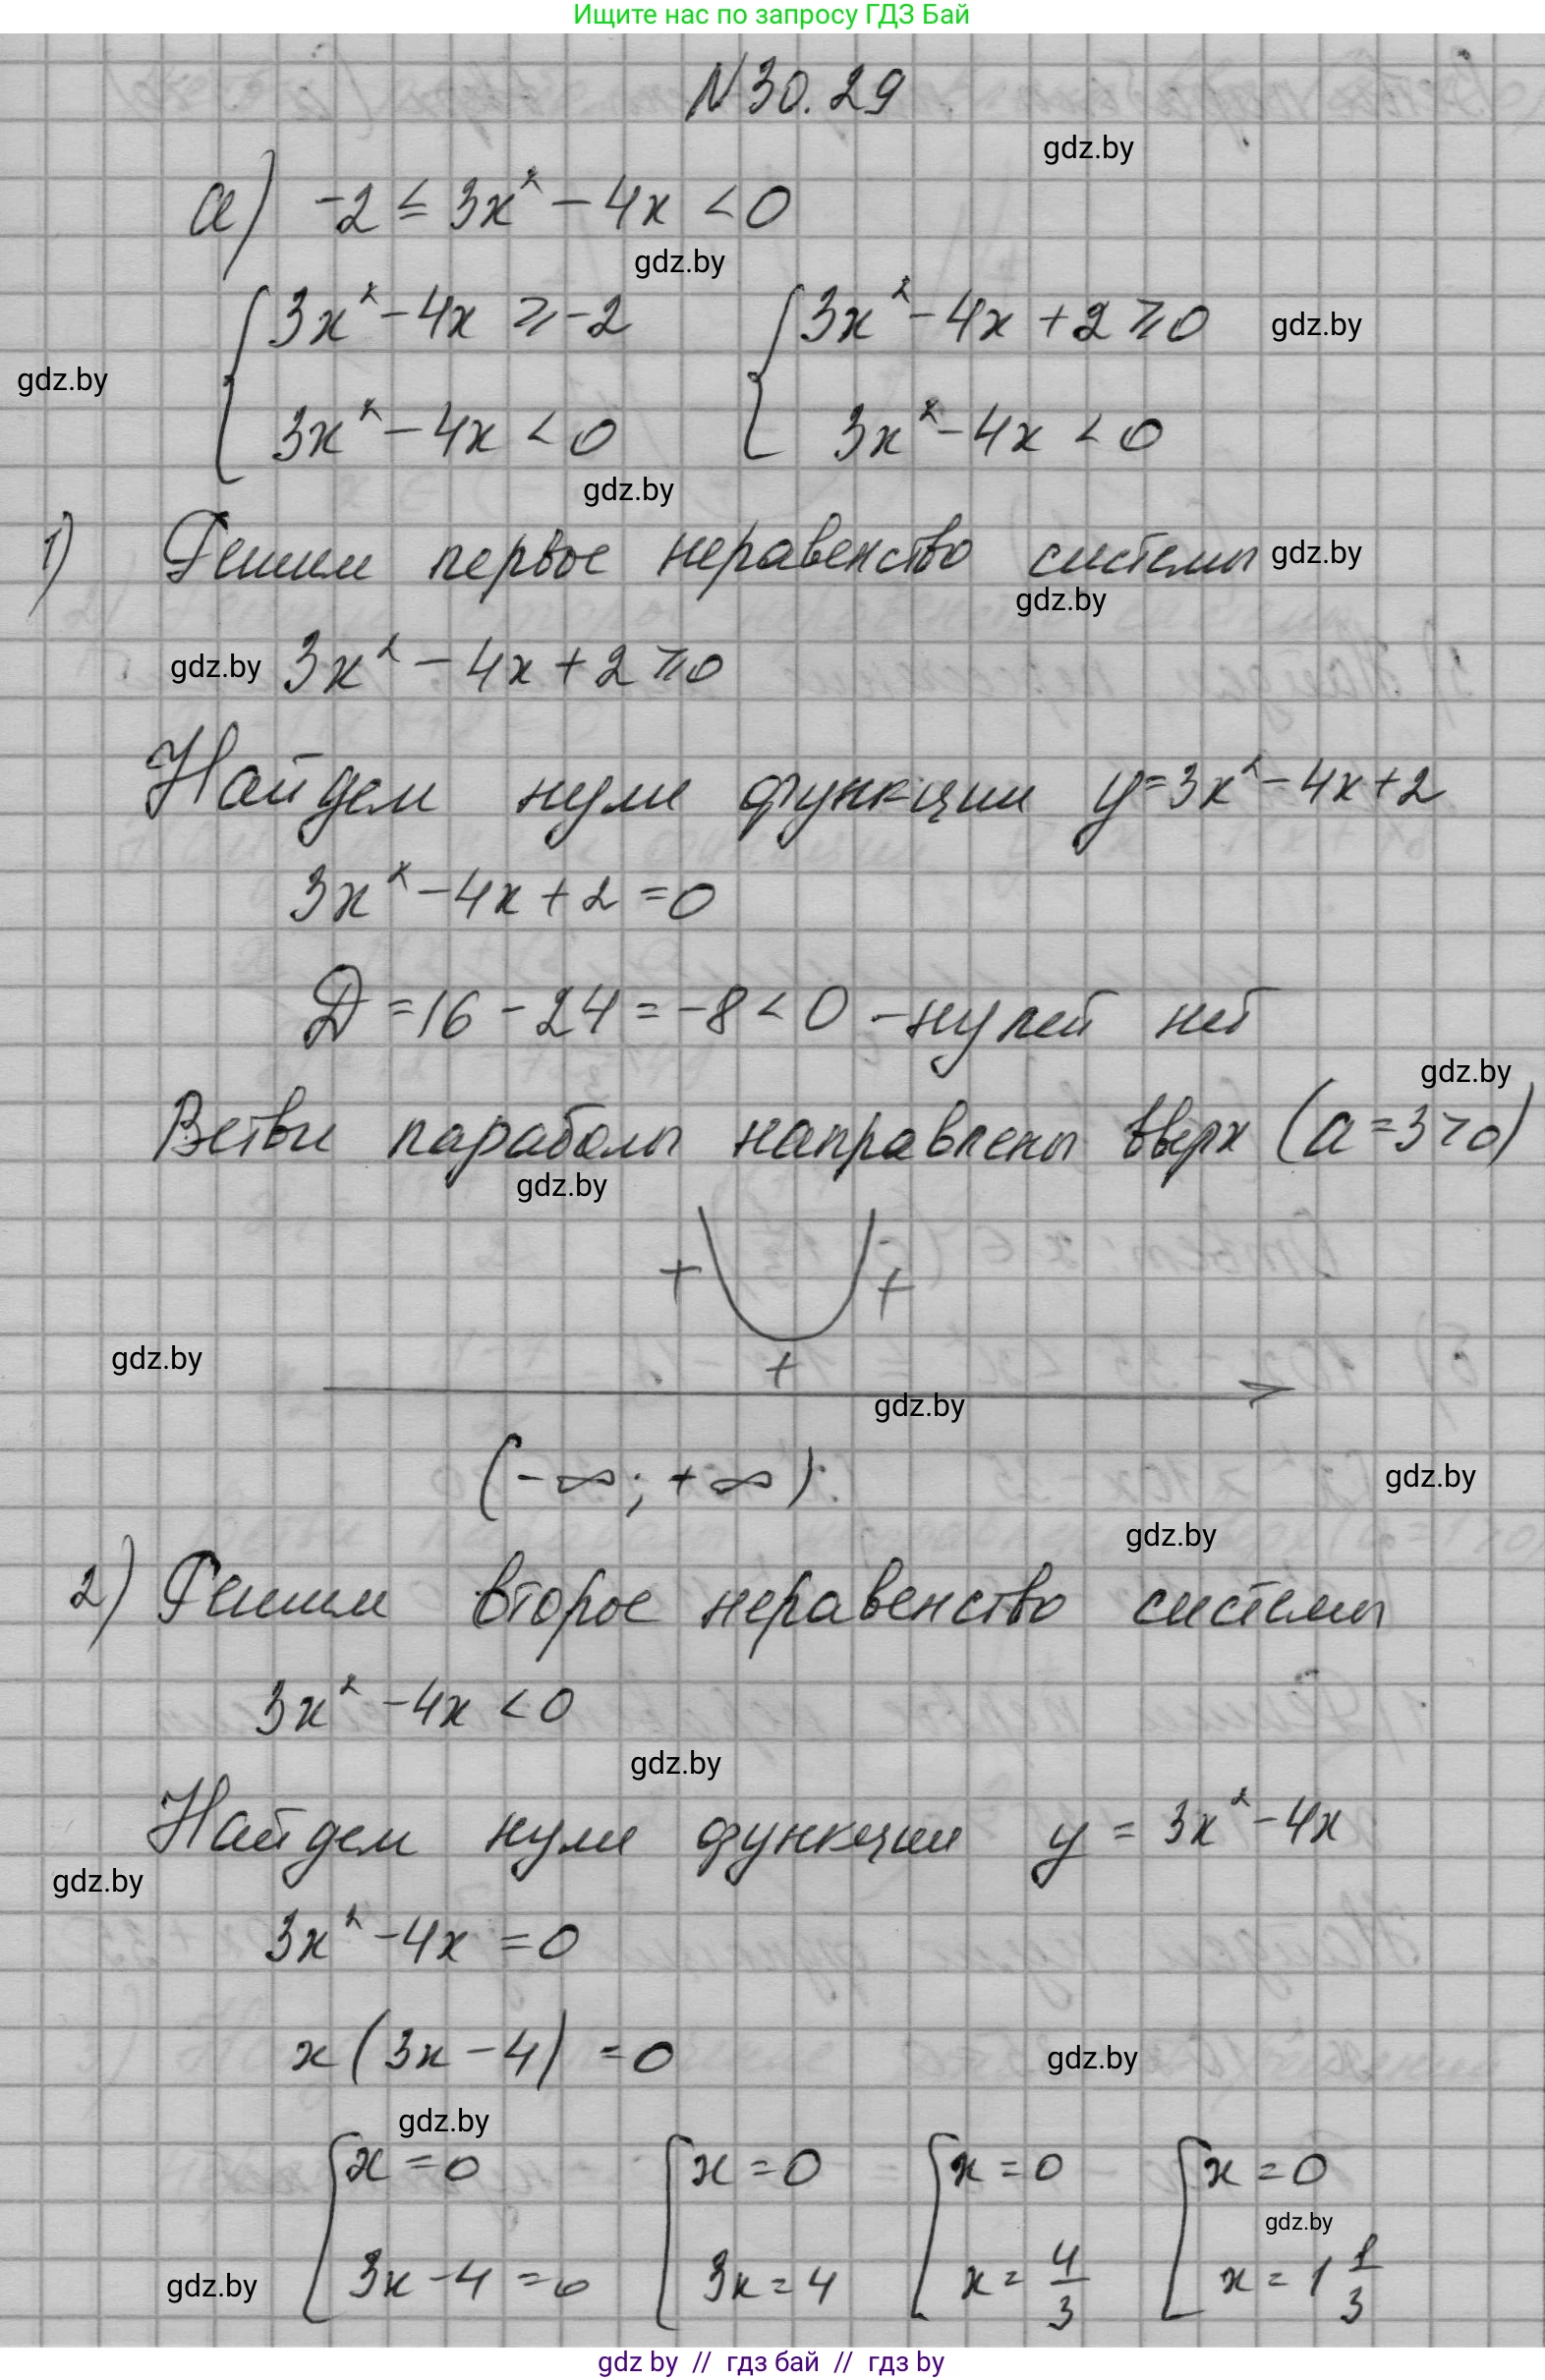 Ищите нас по запросу ГДЗ Бай
N 30.29
gdz.by
а) -2 ≤ 3x² - 4x < 0
gdz.by
{ 3x² - 4x ≥ -2 { 3x² - 4x + 2 ≥ 0 gdz.by
gdz.by
3x² - 4x < 0 3x² - 4x < 0
gdz.by
1) Решим первое неравенство системы gdz.by
gdz.by
gdz.by 3x² - 4x + 2 ≥ 0
Найдем нули функции y = 3x² - 4x + 2
3x² - 4x + 2 = 0
Д = 16 - 24 = -8 < 0 - нулей нет
gdz.by
Ветви параболы направлены вверх (a = 3 > 0)
gdz.by
+ +
gdz.by +
gdz.by
(-∞; +∞).
gdz.by
gdz.by
2) Решим второе неравенство системы
3x² - 4x < 0
gdz.by
Найдем нули функции y = 3x² - 4x
gdz.by
3x² - 4x = 0
x(3x - 4) = 0 gdz.by
gdz.by
[ x = 0 [ x = 0 [ x = 0 [ x = 0
gdz.by
gdz.by 3x - 4 = 0 3x = 4 x = 4/3 x = 1 1/3
gdz by // гдз бай // гдз by